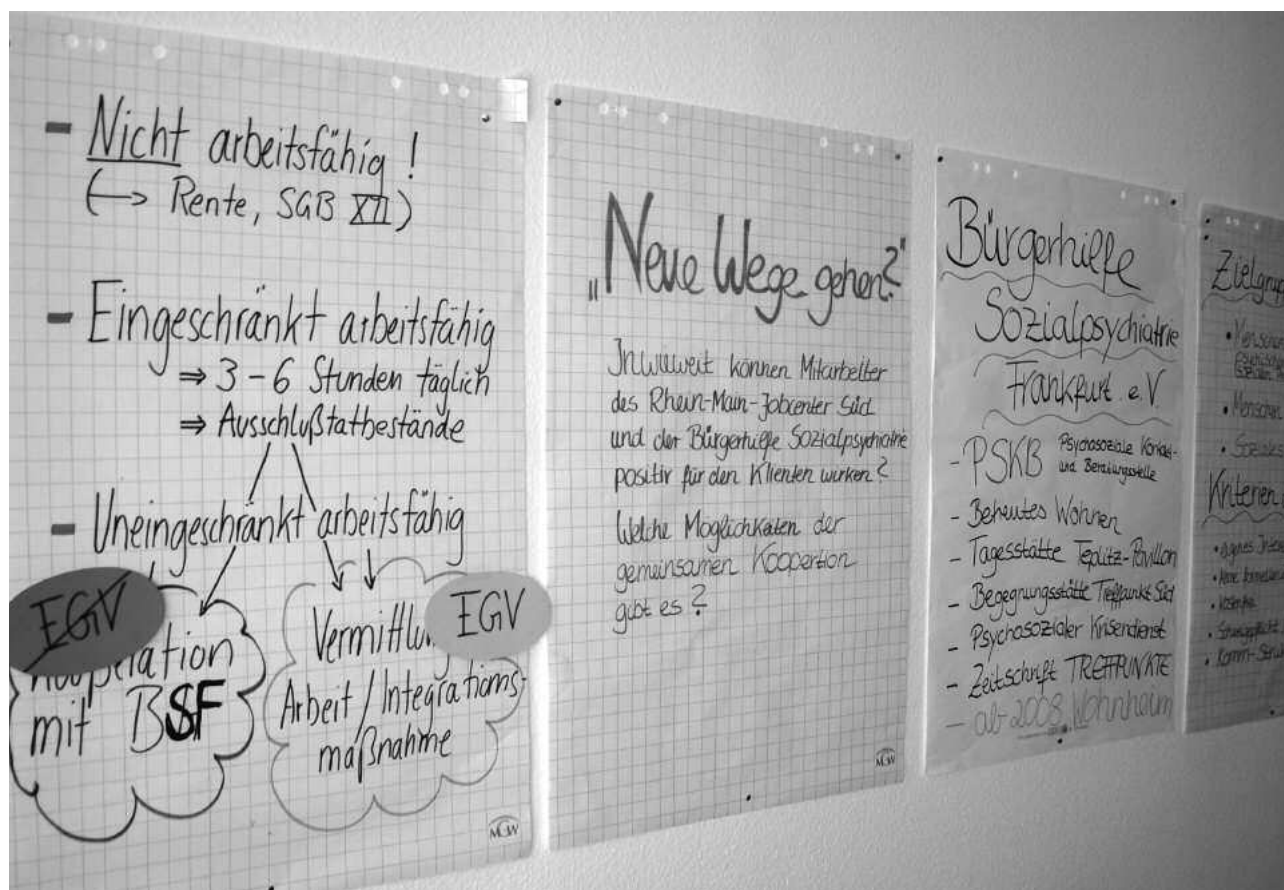 - Nicht arbeitsfähig !
(→ Rente, SGB XII)
- Eingeschränkt arbeitsfähig
⇒ 3-6 Stunden täglich
⇒ Ausschlußtatbestände
- Uneingeschränkt arbeitsfähig
EGV
mit BSF
EGV
Arbeit / Integrations-
maßnahme
MGW
„Neue Wege gehen?"
Inwieweit können Mitarbeiter
des Rhein-Main-Jobcenter Süd
und der Bürgerhilfe Sozialpsychiatrie
positiv für den Klienten wirken?
Welche Möglichkeiten der
gemeinsamen Koopertion
gibt es?
MGW
Bürgerhilfe
Sozialpsychiatrie
Frankfurt e.V.
- PSKB Psychosoziale Kontakt-
und Beratungsstelle
- Betreutes Wohnen
- Tagesstätte Teplitz-Pavillon
- Begegnungsstätte Treffpunkt Süd
- Psychosozialer Krisendienst
- Zeitschrift TREFFPUNKTE
- ab 2008 Wohnheim
• Menschen
• Soziales
Kriterien